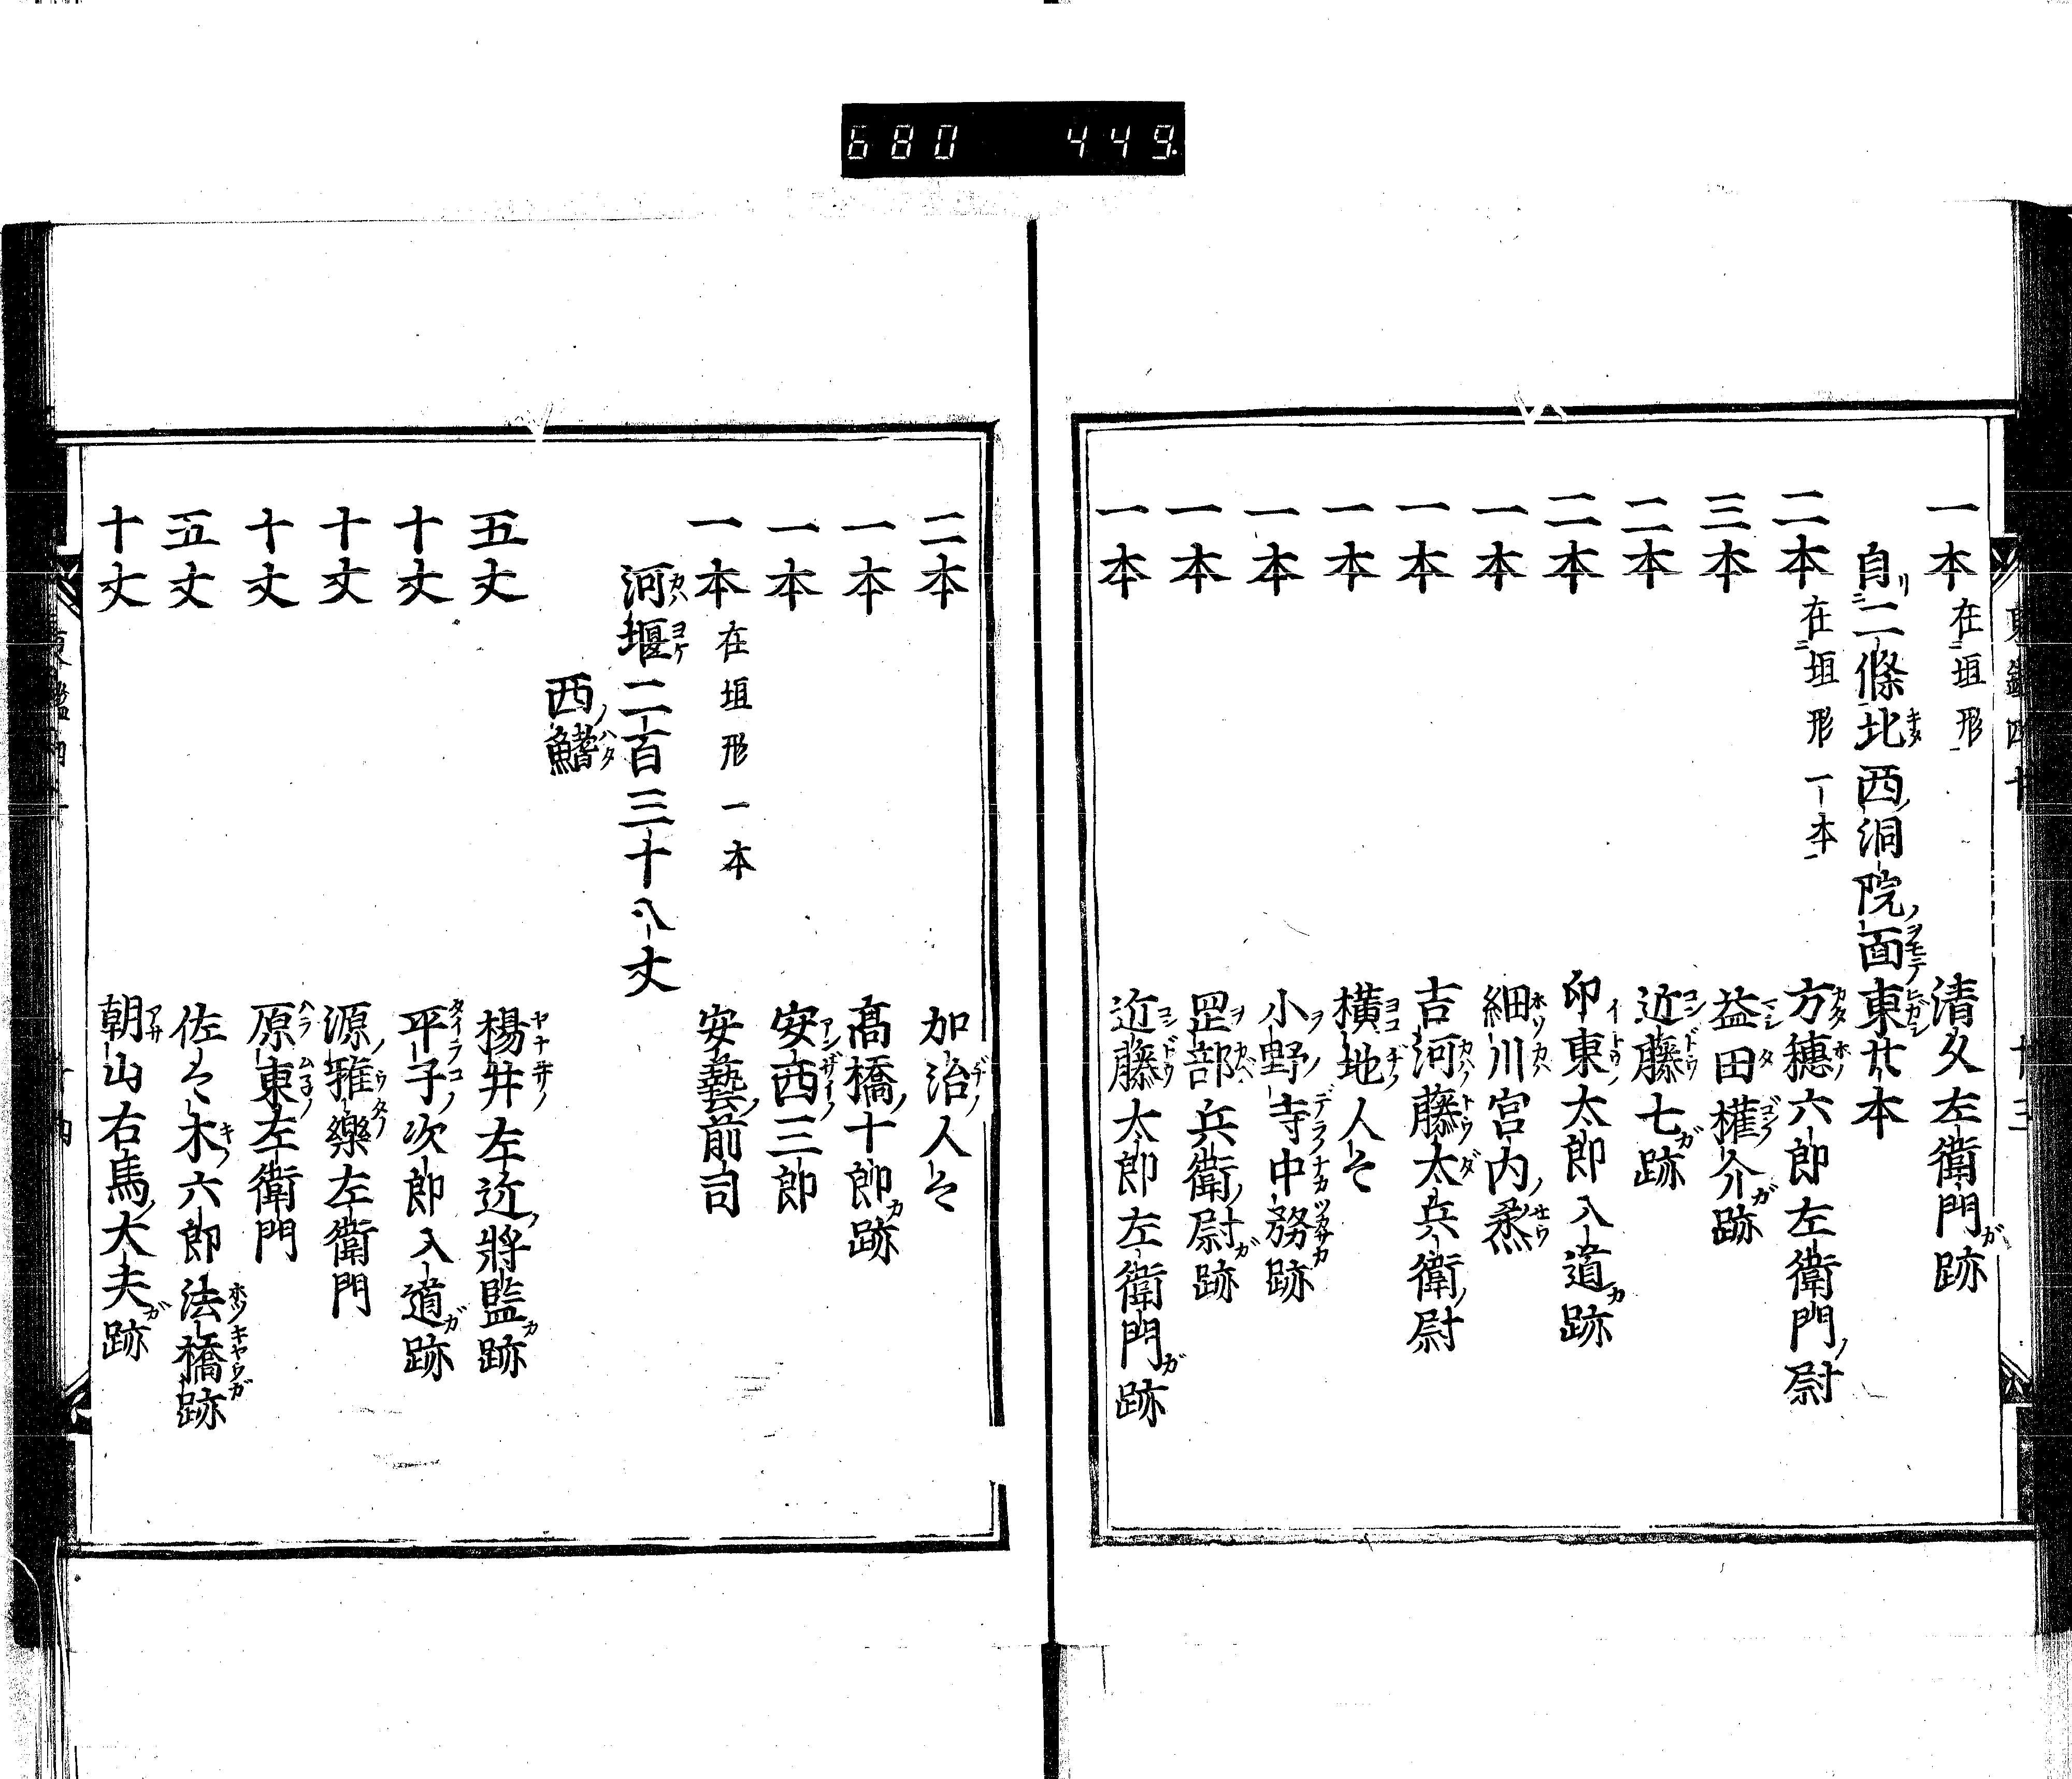 680 449.
一本 在垣形 清久左衛門ガ跡
自二條北西洞院ノ面東廿本
二本 在垣形一本 方穗六郎左衛門ノ尉
三本 益田權介ガ跡
二本 近藤七ガ跡
二本 印東太郎入道カ跡
一本 細川宮内ノ烝
一本 吉河藤太兵衛ノ尉
一本 横地人々
一本 小野寺中務跡
一本 罡部兵衛ノ尉ガ跡
一本 近藤太郎左衛門ガ跡
二本 加治人々
一本 髙橋ノ十郎カ跡
一本 安西三郎
一本 在垣形一本 安藝ノ前司
河堰二百三十八丈
西ノ鰭
五丈 楊井左近ノ將監カ跡
十丈 平子ノ次郎入道ガ跡
十丈 源ノ雅樂左衛門
十丈 原東左衛門
五丈 佐々木六郎法橋跡
十丈 朝山右馬ノ大夫ガ跡